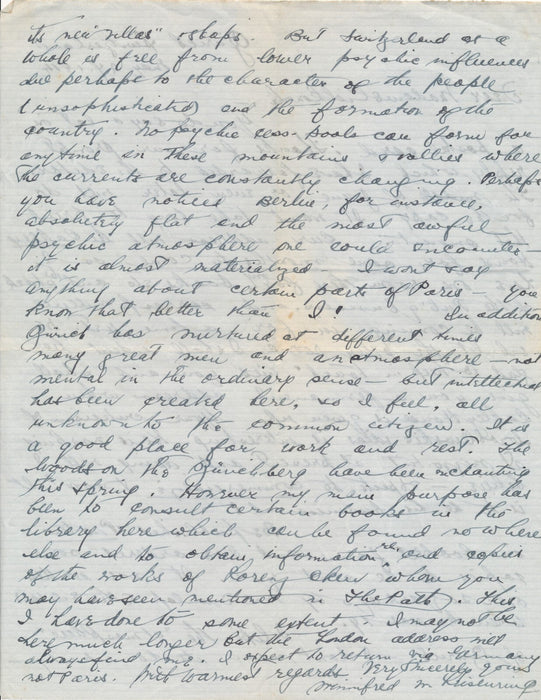 its new "villas" oshaps. But Switzerland as a
whole is free from lower psychic influences
due perhaps to the character of the people
(unsophisticated) and the formation of the
country. No psychic cess-pools can form for
anytime in these mountains & vallies where
the currents are constantly changing. Perhaps
you have noticed Berlin, for instance,
absolutely flat and the most awful
psychic atmosphere one could encounter —
it is almost materialized — I wont say
anything about certain parts of Paris — you
know that better than I! In addition
Zürich has nurtured at different times
many great men and an atmosphere — not
mental in the ordinary sense — but intellectual
has been created here, so I feel, all
unknown to the common citizen. It is
a good place for work and rest. The
woods on the Zürichberg have been enchanting
this spring. However my main purpose has
been to consult certain books in the
library here which can be found nowhere
else and to obtain information re, and copies
of the works of Lorenz Oken whom you
may have seen mentioned in The Path. This
I have done to some extent. I may not be
here much longer but the London address will
always find me. I expect to return via Germany
not Paris. With warmest regards. Very sincerely yours
Winifred M